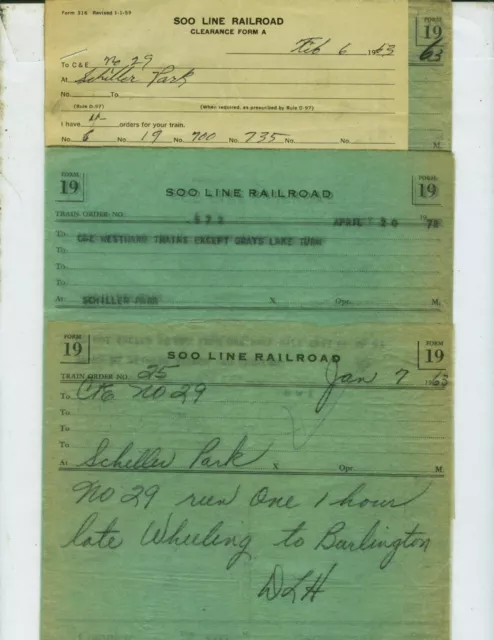 Form 316 Revised 1-1-59
SOO LINE RAILROAD
CLEARANCE FORM A
Feb 6 1963
To C & E No 29
At Schiller Park
No. To
(Rule D-97) (When required, as prescribed by Rule D-97)
I have 4 orders for your train.
No. 6 No. 19 No. 700 No. 735 No. No.
FORM
19
63
M.
FORM
19
SOO LINE RAILROAD
FORM
19
TRAIN ORDER NO. 572 APRIL 20 1973
To C&E WESTWARD TRAINS EXCEPT GRAYS LAKE TURN
To
To
To
At SCHILLER PARK X Opr. M.
FORM
19
SOO LINE RAILROAD
FORM
19
TRAIN ORDER NO. 25 Jan 7 1963
To C&E No 29
To
To
To
At Schiller Park X Opr. M.
No 29 run One 1 hour
late Wheeling to Burlington
DLH